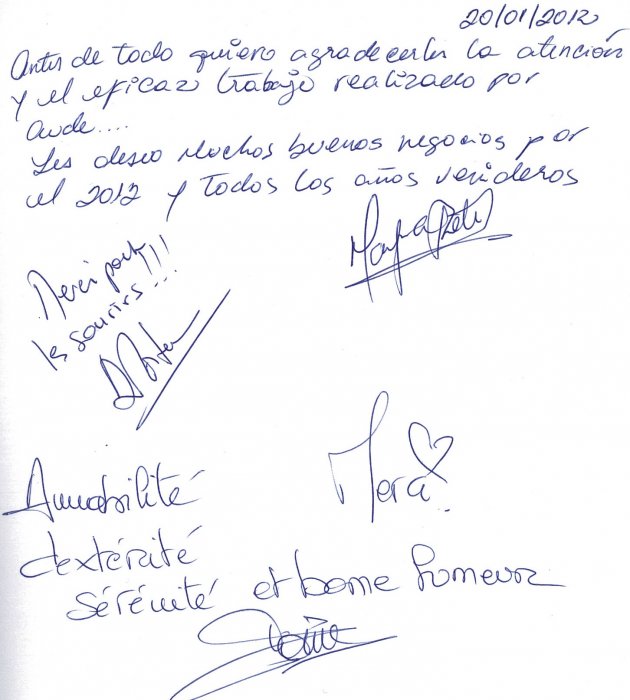 20/01/2012
Antes de todo quiero agradecerles la atención
y el eficaz trabajo realizado por
Aude....
Les deseo muchos buenos negocios por
el 2012 y todos los años venideros
Merci pour
les sourires...!!!
Merci
Amabilité
dextérité
sérénité et bonne humeur